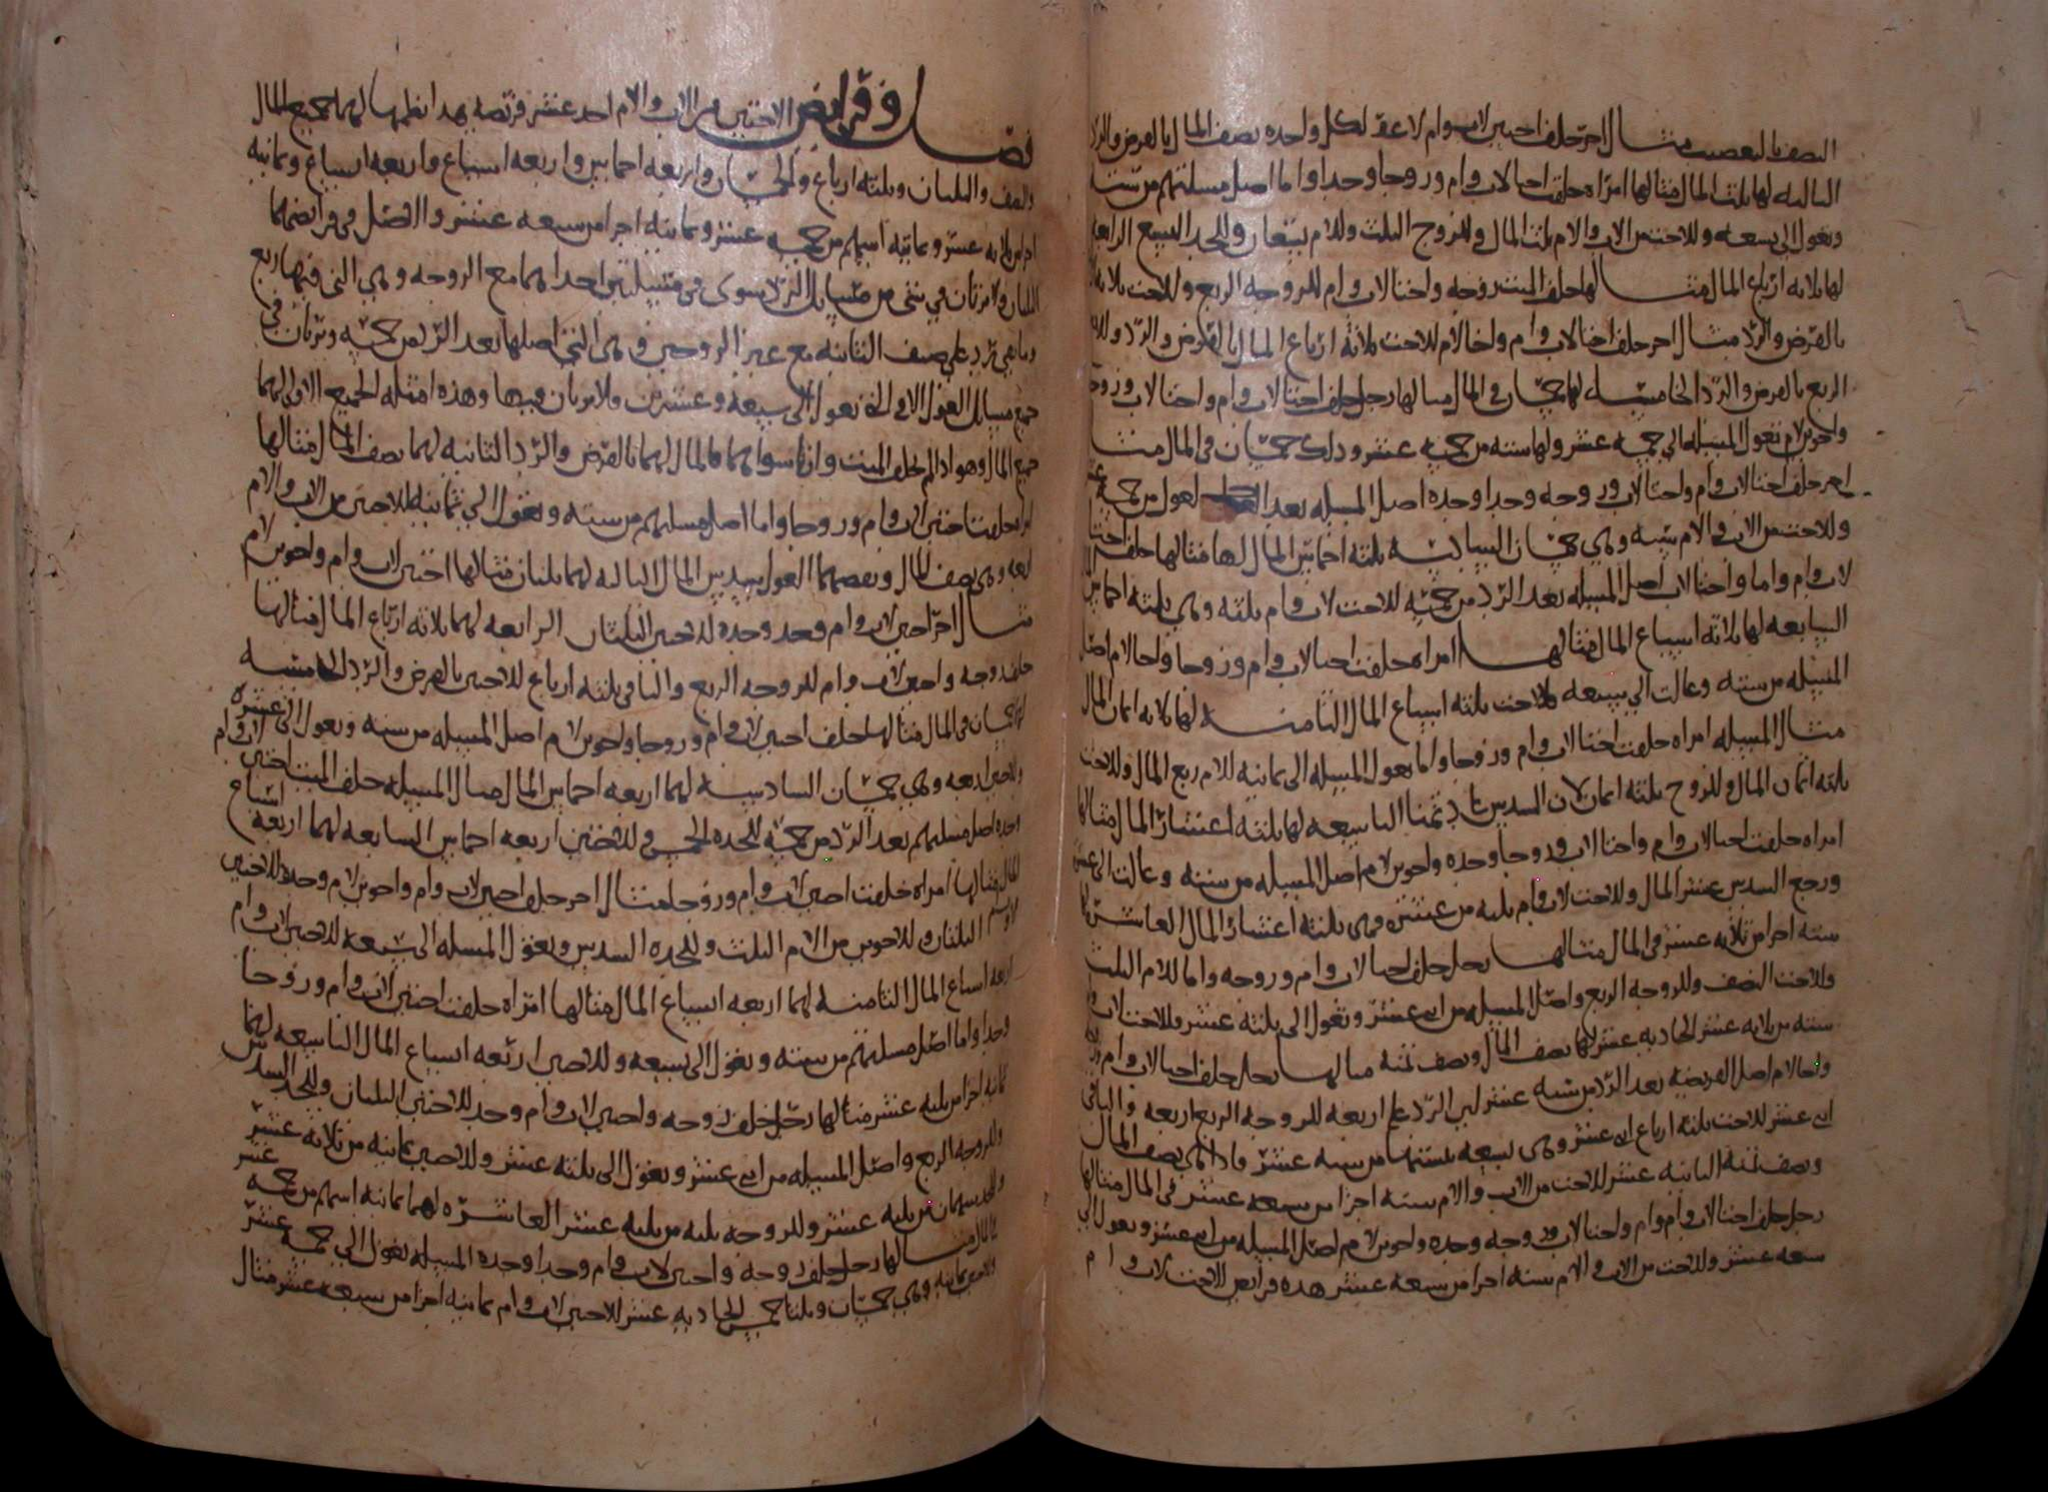 النصف بالتعصيب مثال اخر خلف اختين لاب وام لاغير لكل واحدة نصف المال بالفرض والرد
الثالثه لها ثلث المال مثالها امراه خلفت اختا لاب وام وزوجا وجدا واما اصل مسلتهم من سته
وتعول الى تسعه وللاخت من الاب والام ثلث المال وللزوج الثلث وللام تسعان وللجد التسع الرابعه
لها ثلاثه ارباع المال مثالها خلف الميت زوجه واختا لاب وام للزوجه الربع وللاخت ثلاثه
بالفرض والرد مثال اخر خلف اختا لاب وام واخا لام للاخت ثلاثة ارباع المال بالفرض والرد وللاخ
الربع بالفرض والرد الخامسه لها خمسان في المال مثالها رجل خلف اختا لاب وام واختا لاب وزوجه
واخوين لام تعول المسله الى خمسه عشر ولها سته من خمسه عشر وذلك خمسان في المال مثال
اخر خلف اختا لاب وام واختا لاب وزوجه وجدا وجده اصل المسله بعد العول من خمسه عشر
وللاخت من الاب والام سته وهي خمسان السادسه ثلثه اخماس المال لها مثالها خلف اختا
لاب وام واما واختا لاب اصل المسله بعد الرد من خمسه للاخت لاب وام ثلثه وهي ثلثه اخماس
السابعه لها ثلاثه اسباع المال مثالها امراه خلفت اختا لاب وام وزوجا واخا لام اصل
المسله من سته وعالت الى سبعه للاخت ثلثه اسباع المال الثامنه لها ثلاثه اثمان المال
مثال المسله امراه خلفت اختا لاب وام وزوجا واما تعول المسله الى ثمانيه للام ربع المال وللاخت
ثلثه اثمان المال وللزوج ثلثه اثمان لان السدس عاد ثمنا التاسعه لها ثلثه اعشار المال مثالها
امراه خلفت اختا لاب وام واختا لاب وزوجا وجده واخوين لام اصل المسله من سته وعالت الى عشره
ورجع السدس عشر المال وللاخت لاب وام ثلثه من عشره وهي ثلثه اعشار المال العاشره لها
سته اجزا من ثلاثه عشر في المال مثالها رجل خلف اختا لاب وام وزوجه واما للام الثلث
وللاخت النصف وللزوجه الربع واصل المسله من اثنى عشر وتعول الى ثلثه عشر وللاخت لاب وام
سته من ثلاثه عشر الحاديه عشر لها نصف المال ونصف ثمنه مثالها رجل خلف اختا لاب وام وزوجه
واخا لام اصل الفريضه بعد الرد من سته عشر لمن الرد على اربعه للزوجه الربع اربعه والباقي
اثنى عشر للاخت ثلثه ارباع اثنى عشر وهي تسعه من سته عشر وذلك نصف المال
ونصف ثمنه الثانيه عشر للاخت من الاب والام سته اجزا من سبعه عشر في المال مثالها
رجل خلف اختا لاب وام وام واختا لاب وزوجه وجده واخوين لام اصل المسله من اثنى عشر وتعول الى
سبعه عشر وللاخت من الاب والام سته اجزا من سبعه عشر هذه فرايض الاخت لاب وام
فصل وفرايض الاختين من الاب والام احد عشر فريضه بعد انظمها لهما جميع المال
ونصف والثلثان وثلثه ارباع والخمسان واربعه اخماس واربعه اسباع واربعه اتساع وثمانيه
اجزا من ثلاثه عشر وثمانيه اسهم من خمسه عشر وثمانيه اجزا من سبعه عشر والاصل في فرايضهما
الثلثان ولا يرثان في شي من مسايل الرد سوى في مسلتين احداهما مع الزوجه وهي التي فيها ربع
وما بقي رد على صنف الثانيه مع غير الزوجين وهي التي اصلها بعد الرد من خمسه وترثان في
جميع مسايل العول الا في التي تعول الى سبعه وعشرين فلا يرثان فيها وهذه امثله الجميع الاولى لهما
جميع المال وهو اذا لم يخلف الميت وارثا سواهما فالمال لهما بالفرض والرد الثانيه لهما نصف المال مثالها
امراه خلفت اختين لاب وام وزوجا واما اصل مسلتهم من سته وتعول الى ثمانيه للاختين من الاب والام
اربعه وهي نصف المال ونقصهما العول سدس المال الثالثه لهما ثلثان مثالها اختين لاب وام واخوين لام
مثال اخر اختين لاب وام وجد وجده للاختين الثلثان الرابعه لهما ثلاثه ارباع المال مثالها
خلف زوجه واختين لاب وام للزوجه الربع والباقي ثلثه ارباع للاختين بالفرض والرد الخامسه
لهما خمسان في المال مثالها خلف اختين لاب وام وزوجا واخوين لام اصل المسله من سته وتعول الى عشره
وللاختين اربعه وهي خمسان السادسه لهما اربعه اخماس المال مثال المسله خلف الميت اختين لاب وام
وجده اصل مسلتهم بعد الرد من خمسه للجده الخمس وللاختين اربعه اخماس السابعه لهما اربعه اسباع
المال مثالها امراه خلفت اختين لاب وام وزوجا مثال اخر خلف اختين لاب وام واخوين لام وجده للاختين
الثلثان وللاخوين من الام الثلث وللجده السدس وتعول المسله الى سبعه للاختين لاب وام
اربعه اسباع المال الثامنه لهما اربعه اتساع المال مثالها امراه خلفت اختين لاب وام وزوجا
وجدا واما اصل مسلتهم من سته وتعول الى تسعه وللاختين اربعه اتساع المال التاسعه لهما
ثمانيه اجزا من ثلثه عشر مثالها رجل خلف زوجه واختين لاب وام وجد للاختين الثلثان وللجد السدس
وللزوجه الربع واصل المسله من اثنى عشر وتعول الى ثلثه عشر وللاختين ثمانيه من ثلاثه عشر
وللجد سهمان من ثلثه عشر وللزوجه ثلثه من ثلثه عشر العاشره لهما ثمانيه اسهم من خمسه عشر
مثالها رجل خلف زوجه واختين لاب وام وجدا وجده المسله تعول الى خمسه عشر
ثمانيه وهي خمسان وثلثا خمس الحاديه عشر للاختين لاب وام ثمانيه اجزا من سبعه عشر مثال